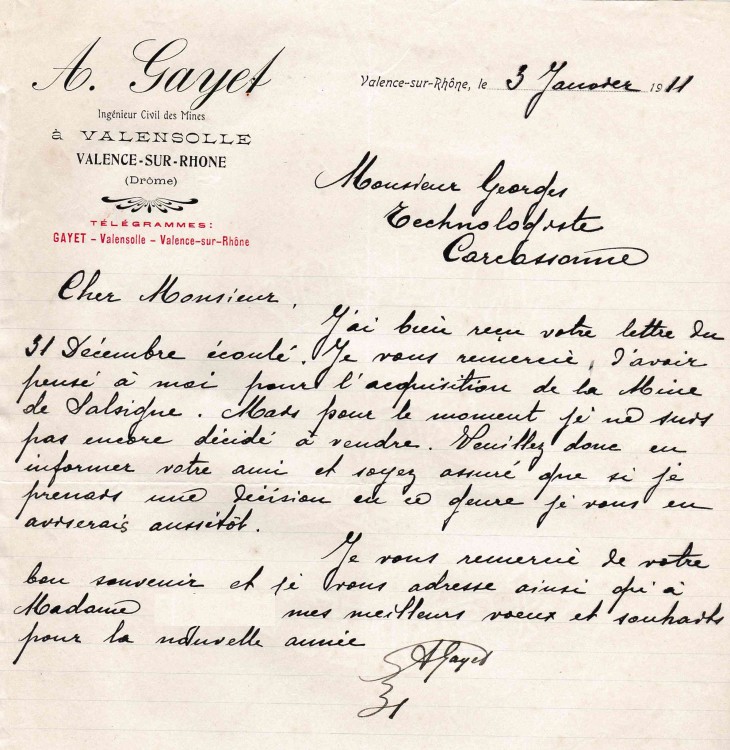 A. Gayet
Ingénieur Civil des Mines
à VALENSOLLE
VALENCE-SUR-RHONE
(Drôme)
TÉLÉGRAMMES:
GAYET - Valensolle - Valence-sur-Rhône
Valence-sur-Rhône, le 3 Janvier 1911
Monsieur Georges
Technologiste
Carcassonne
Cher Monsieur,
J'ai bien reçu votre lettre du
31 Décembre écoulé. Je vous remercie d'avoir
pensé à moi pour l'acquisition de la Mine
de Salsigne. Mais pour le moment je ne suis
pas encore décidé à vendre. Veuillez donc en
informer votre ami et soyez assuré que si je
prenais une décision en ce genre je vous en
aviserais aussitôt.
Je vous remercie de votre
bon souvenir et je vous adresse ainsi qu'à
Madame mes meilleurs voeux et souhaits
pour la nouvelle année
A Gayet